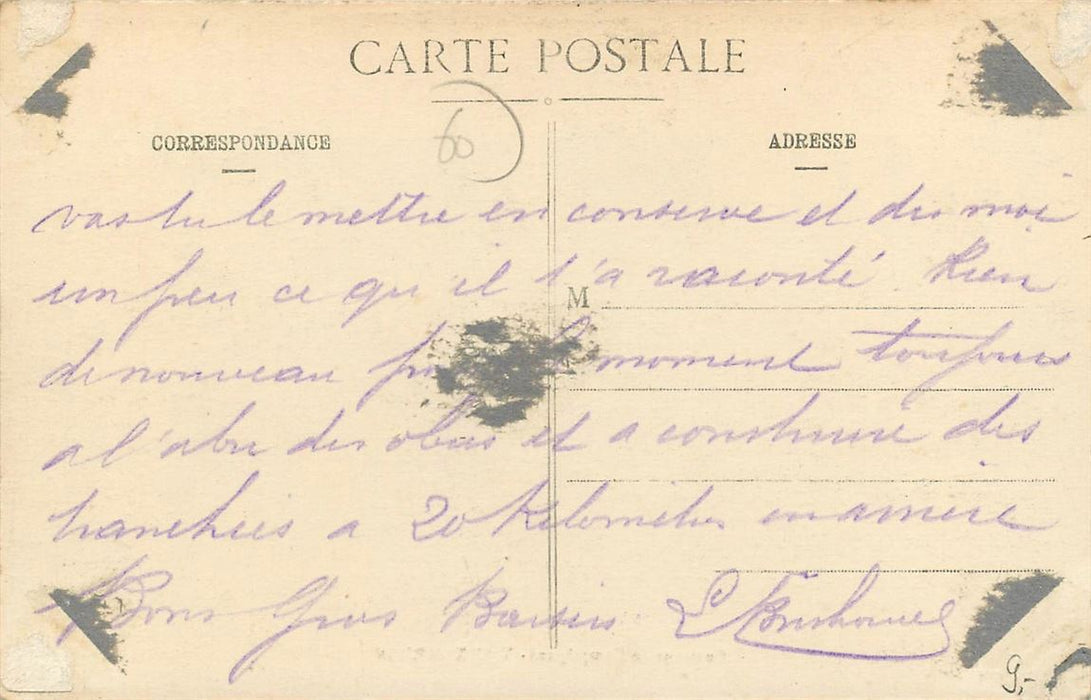 CARTE POSTALE
60
CORRESPONDANCE
ADRESSE
vas tu le mettre en conserve et dis moi
un peu ce qu il t'a raconté Rien
de nouveau pour le moment toujours
a l'abri des obus et a construire des
M
tranchees a 20 Kilometres en arriere
Bons Gros Baisers
9,-